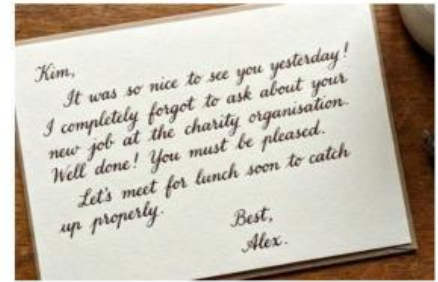 Kim,
It was so nice to see you yesterday!
I completely forgot to ask about your
new job at the charity organisation.
Well done! You must be pleased.
Let's meet for lunch soon to catch
up properly.
Best,
Alex.